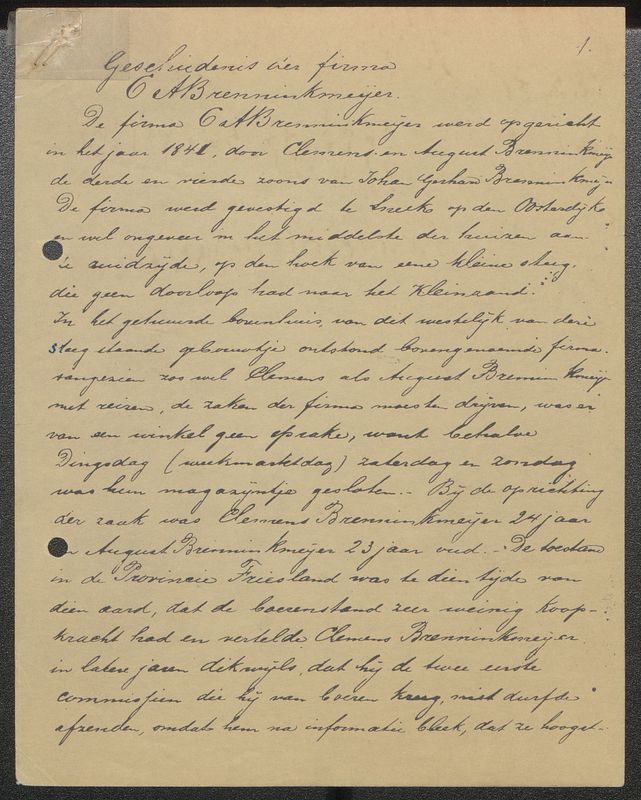 1.
Geschiedenis der firma
C & A Brenninkmeijer.
De firma C & A Brenninkmeijer werd opgericht
in het jaar 1841, door Clemens en August Brenninkmeijer
de derde en vierde zoons van Johan Gerhard Brenninkmeijer
De firma werd gevestigd te Sneek op den Oosterdijk
en wel ongeveer in het middelste der huizen aan
de zuidzijde, op den hoek van eene kleine steeg
die geen doorloop had naar het Kleinzand.
In het gehuurde bovenhuis van dit westelijk van deze
steeg staande gebouwtje ontstond bovengenoemde firma.
aangezien zoo wel Clemens als August Brenninkmeijer
met reizen, de zaken der firma moesten drijven, was er
van een winkel geen sprake, want behalve
Dingsdag (weekmarktdag) zaterdag en zondag
was hun magazijntje gesloten. - Bij de oprichting
der zaak was Clemens Brenninkmeijer 24 jaar
en August Brenninkmeijer 23 jaar oud. - De toestand
in de Provincie Friesland was te dien tijde van
dien aard, dat de boerenstand zeer weinig koop-
kracht had en vertelde Clemens Brenninkmeijer
in latere jaren dikwijls, dat hij de twee eerste
commissjen die hij van boeren kreeg, niet durfde
afzenden, omdat hem na informatie bleek, dat ze hoogst-